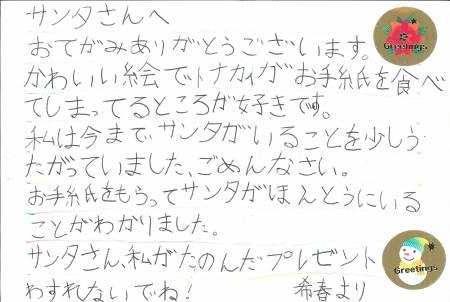 サンタさんへ
おてがみありがとうございます。
かわいい絵でトナカイがお手紙を食べ
てしまってるところが好きです。
私は今までサンタがいることを少しう
たがっていました、ごめんなさい。
お手紙をもらってサンタがほんとうにいる
ことがわかりました。
サンタさん、私がたのんだプレゼント
わすれないでね!
希春より
Greetings
Greetings